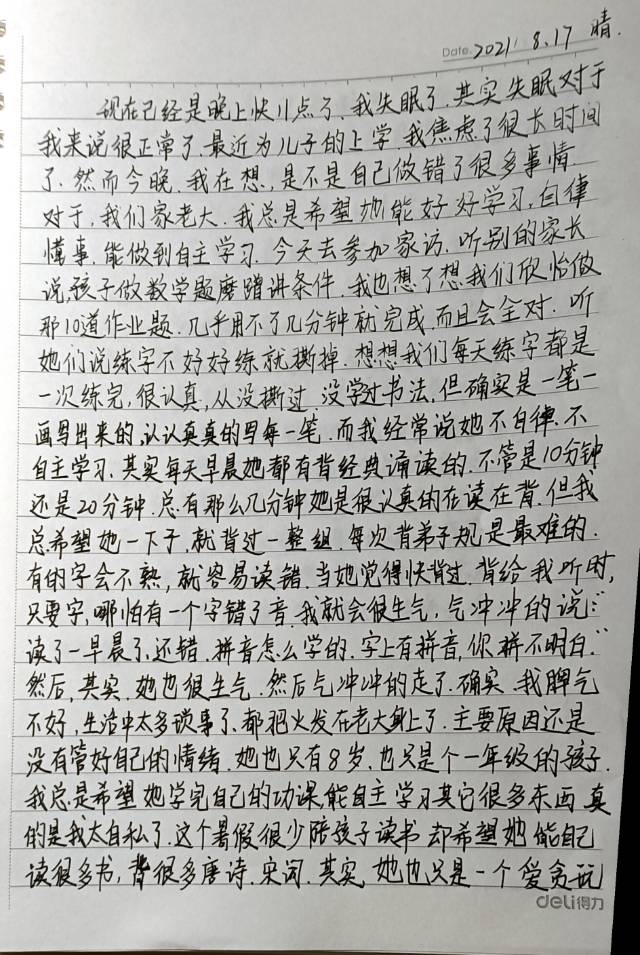 Date. 2021 8.17 晴.
现在已经是晚上快11点了.我失眠了.其实失眠对于
我来说很正常了.最近为儿子的上学.我焦虑了很长时间
了.然而今晚.我在想.是不是自己做错了很多事情.
对于,我们家老大.我总是希望她能好好学习,自律
懂事.能做到自主学习.今天去参加家访.听别的家长
说,孩子做数学题磨蹭讲条件.我也想了想我们欣怡做
那10道作业题.几乎用不了几分钟就完成.而且会全对.听
她们说练字不好好练就撕掉.想想我们每天练字都是
一次练完,很认真,从没撕过 没学过书法,但确实是一笔一
画写出来的,认认真真的写每一笔.而我经常说她不自律.不
自主学习.其实每天早晨她都有背经典诵读的.不管是10分钟
还是20分钟.总有那么几分钟她是很认真的在读在背.但我
总希望她一下子,就背过一整组.每次背弟子规是最难的.
有的字会不熟,就容易读错.当她觉得快背过.背给我听时,
只要字,哪怕有一个字错了音.我就会很生气,气冲冲的说:"
读了一早晨了,还错.拼音怎么学的.字上有拼音,你拼不明白."
然后,其实.她也很生气.然后气冲冲的走了.确实.我脾气
不好,生活中太多琐事了.都把火发在老大身上了.主要原因还是
没有管好自己的情绪.她也只有8岁.也只是个一年级的孩子.
我总是希望她学完自己的功课,能自主学习其它很多东西 真
的是我太自私了.这个暑假很少陪孩子读书 却希望她能自己
读很多书,背很多唐诗.宋词.其实,她也只是一个爱贪玩
deli得力